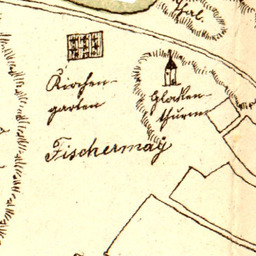 Kirchen-
garten
Glocken-
thurm
Fischermaÿ